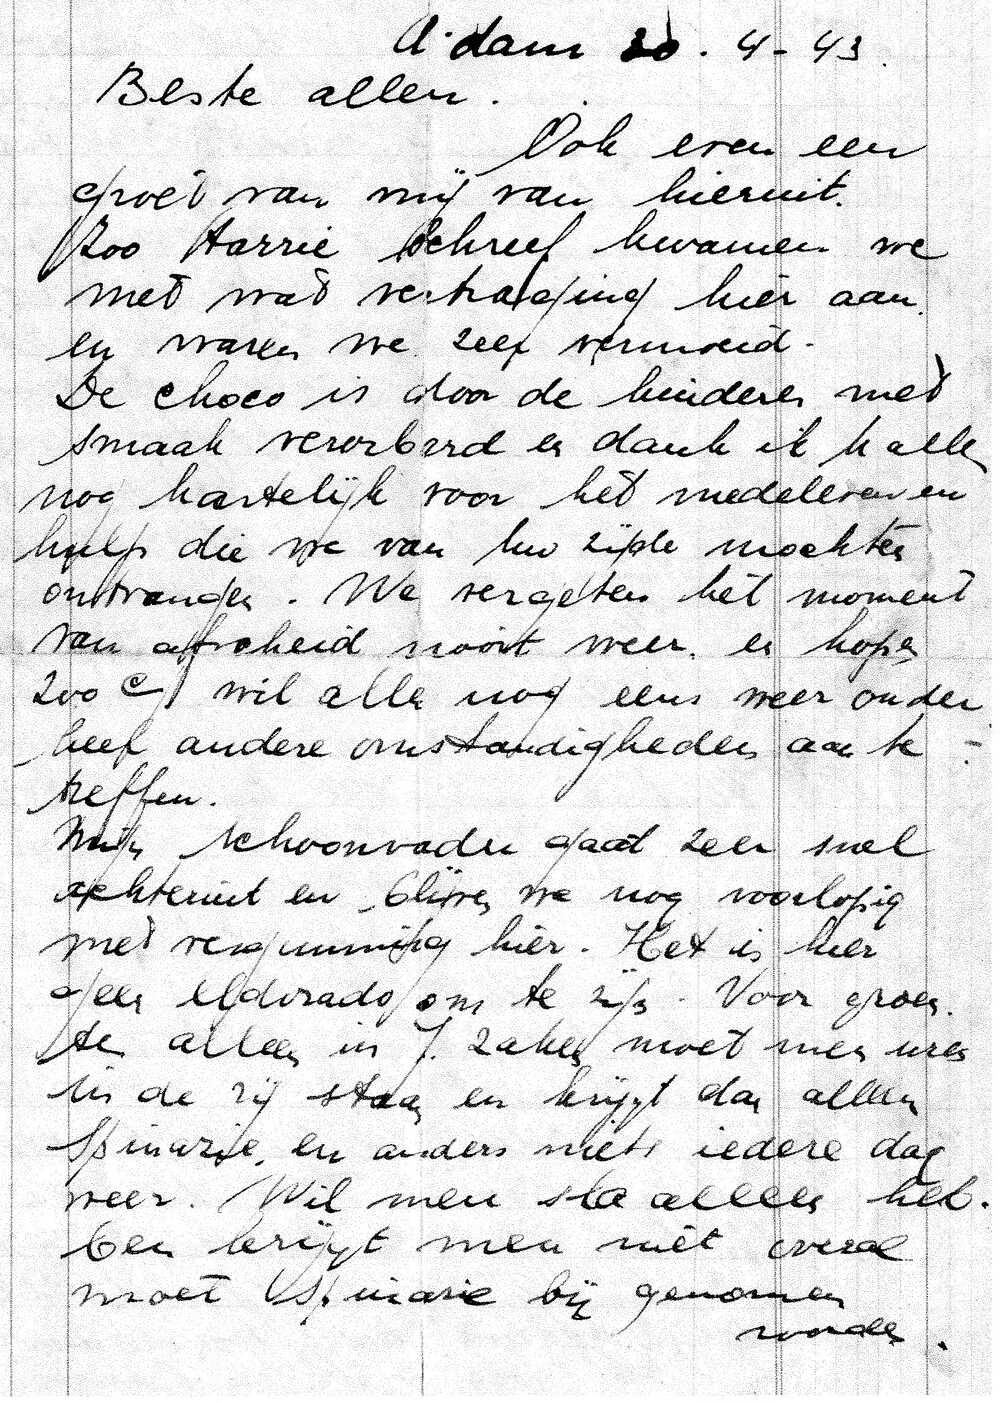 A'dam 20. 4-43.
Beste allen.
Ook even een
groet van mij van hieruit.
Zoo Harrie schreef kwamen we
met wat vertraging hier aan.
en waren we zeer vermoeid.
De choco is door de kinderen met
smaak verorberd en dank ik U allen
nog hartelijk voor het medeleven en
hulp die we van Uw zijde mochten
ontvangen. We vergeten het moment
van afscheid nooit weer. en hopen
zoo G wil allen nog eens weer onder
heel andere omstandigheden aan te
treffen.
Mijn schoonvader gaat zeer snel
achteruit en blijven we nog voorlopig
met vergunning hier. Het is hier
geen eldorado om te zijn. Voor groen.
ten alleen in J. zaken moet men uren
in de rij staan en krijgt dan alleen
Spinazie, en anders niets iedere dag
weer. Wil men sla alleen heb.
ben krijgt men niet overal
moet Spinazie bij genomen
worden.